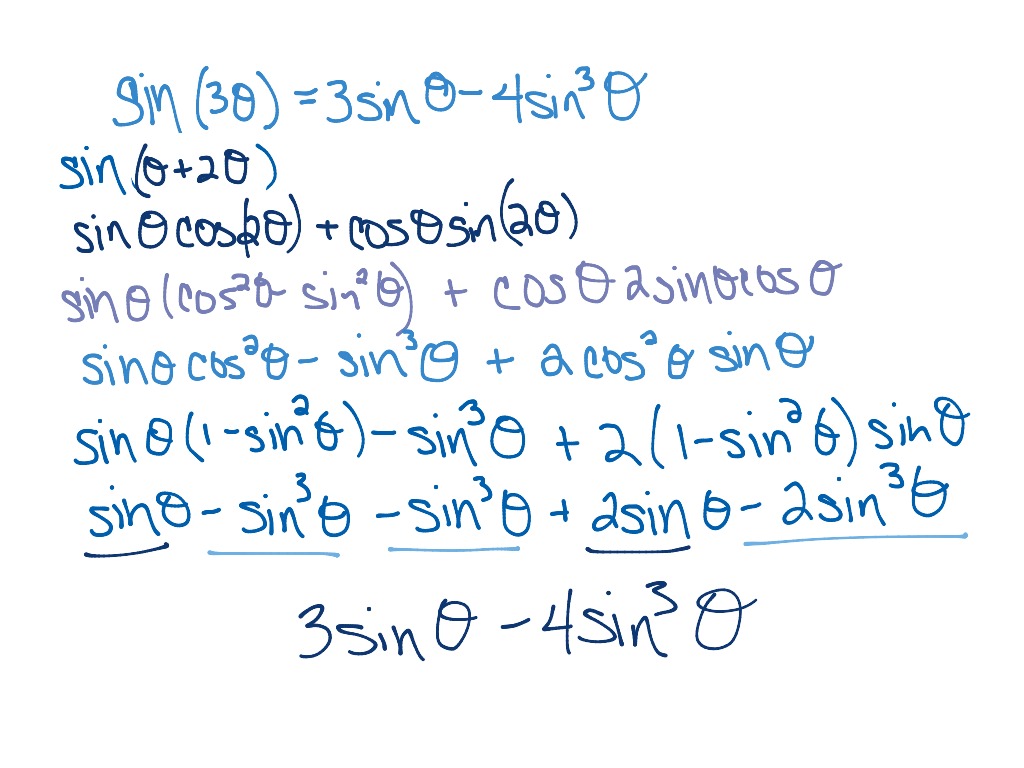 sin(3θ) = 3sinθ - 4sin³θ
sin(θ+2θ)
sinθcos(2θ) + cosθsin(2θ)
sinθ(cos²θ - sin²θ) + cosθ2sinθcosθ
sinθcos²θ - sin³θ + 2cos²θ sinθ
sinθ(1-sin²θ) - sin³θ + 2(1-sin²θ)sinθ
sinθ - sin³θ - sin³θ + 2sinθ - 2sin³θ
3sinθ - 4sin³θ